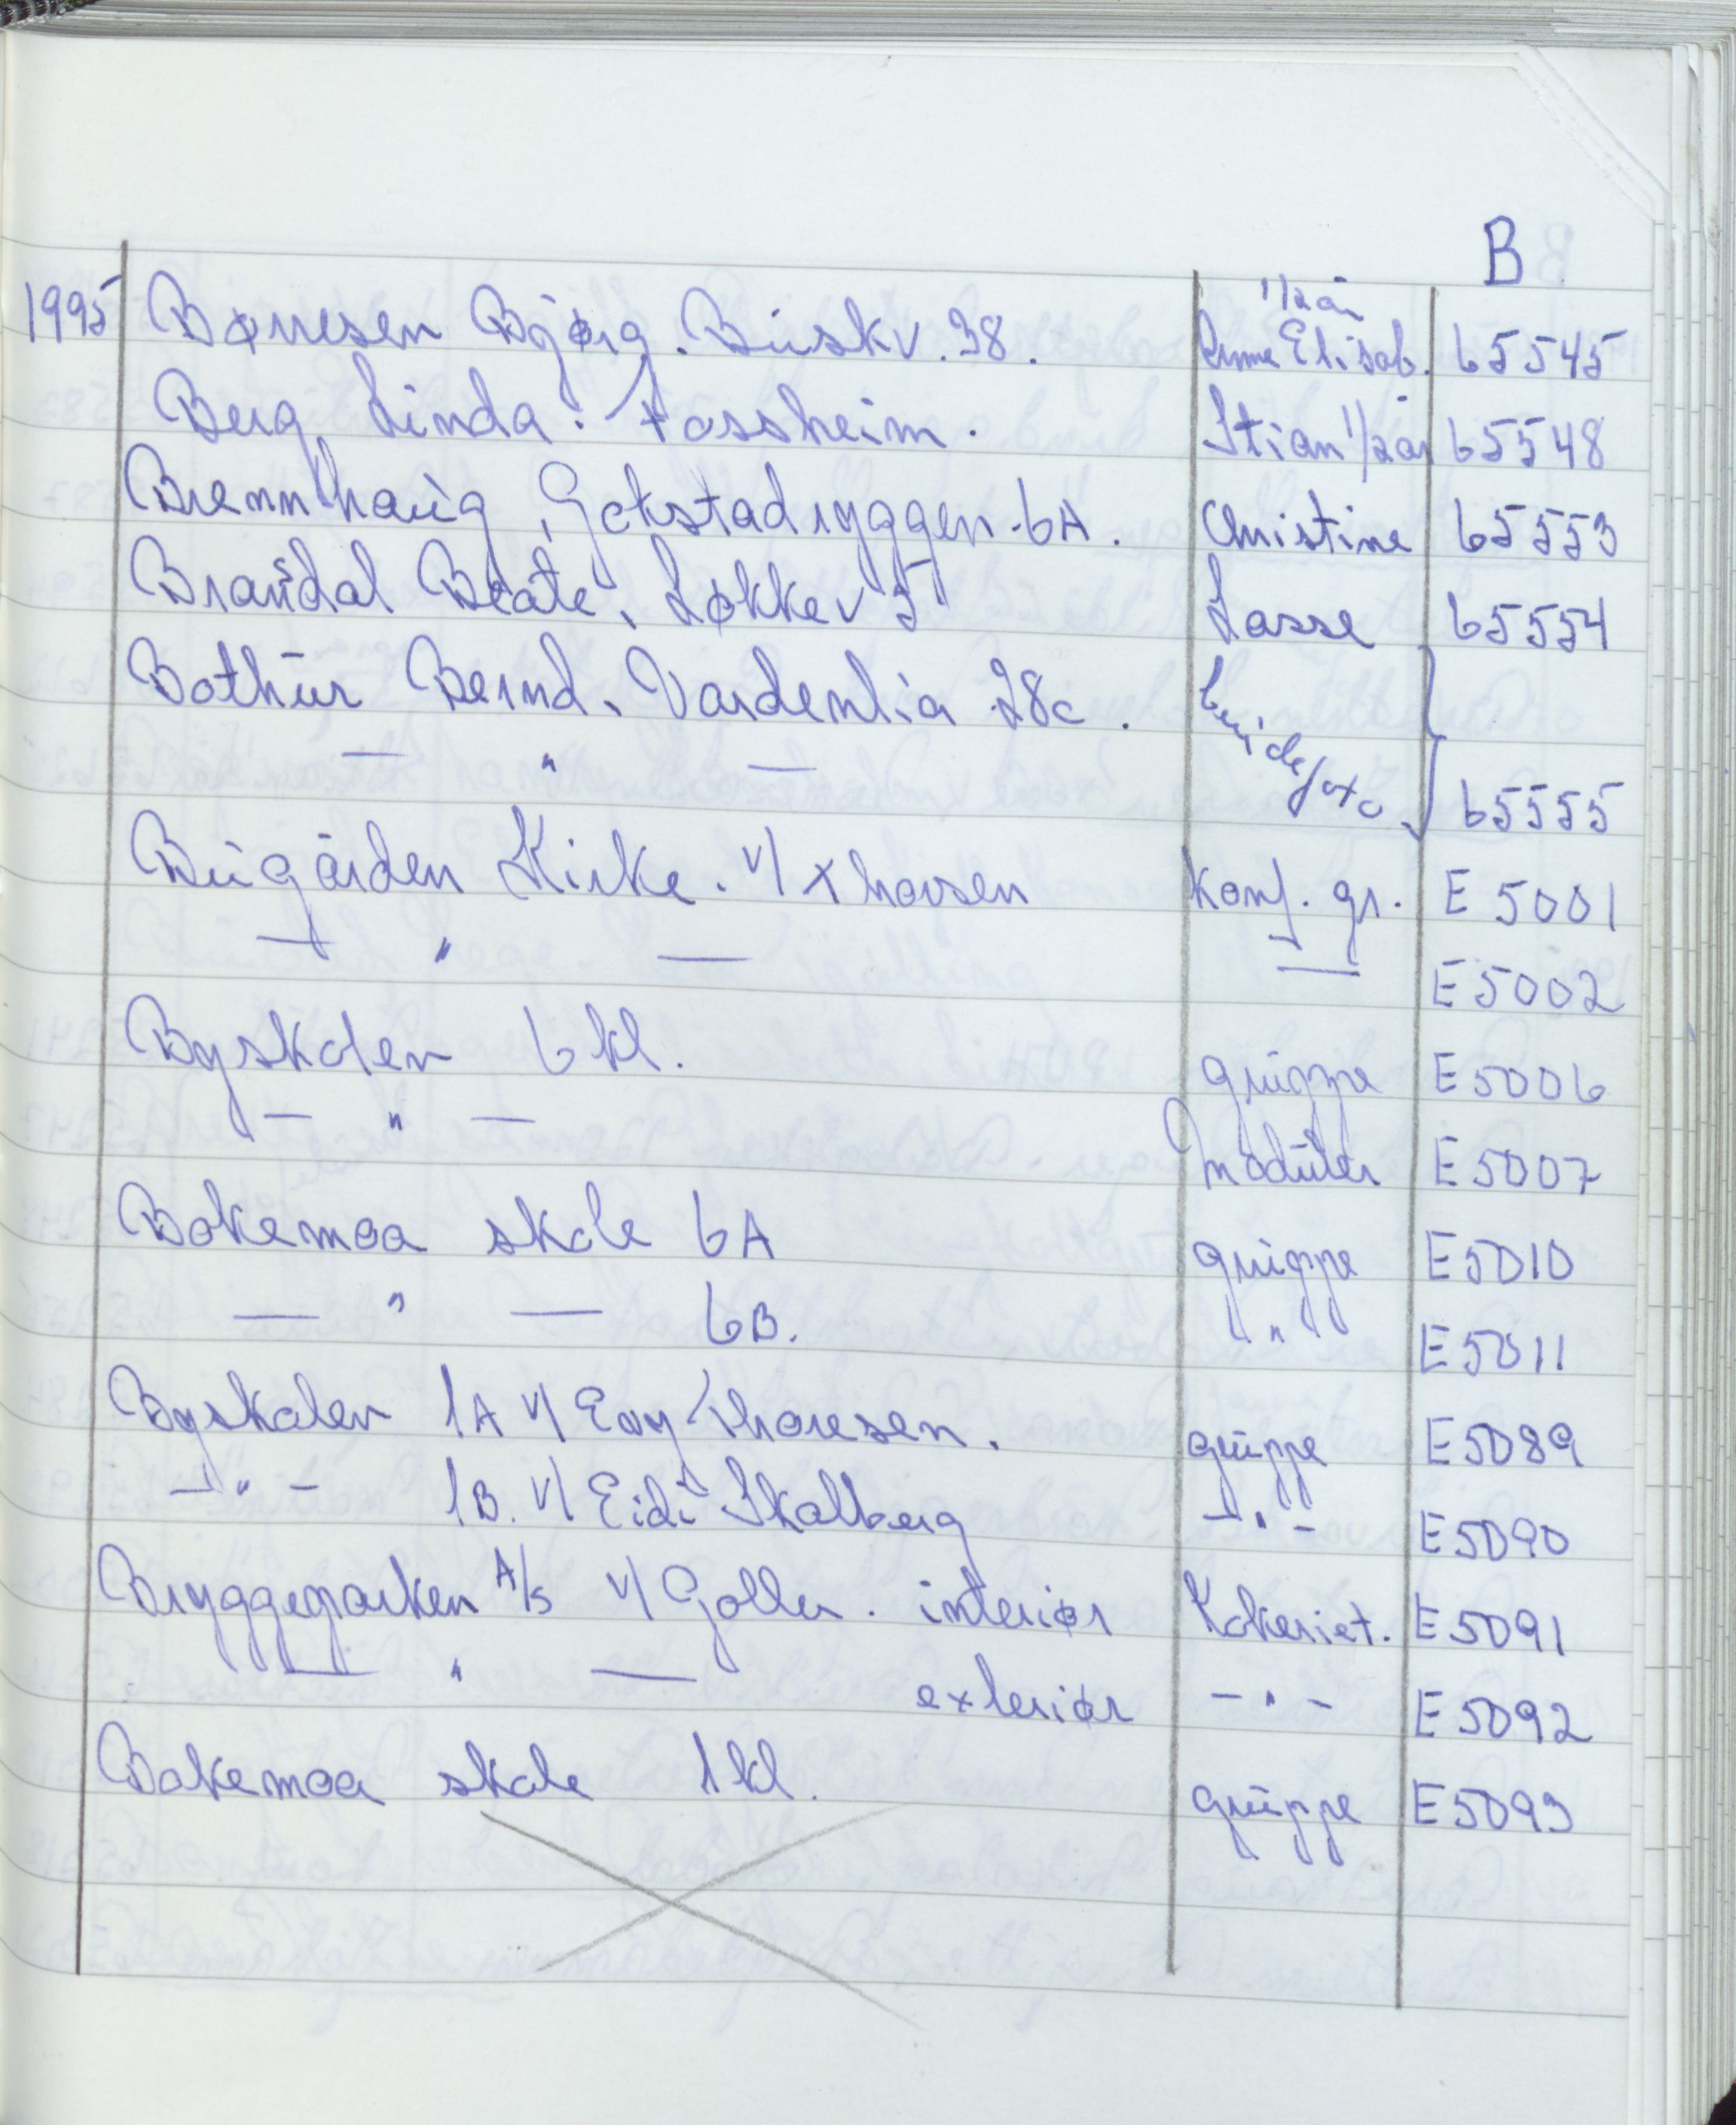 B
1995 Børresen Bjørg. Buskv. 38. 1/2 år Anne Elisab. 65545
Berg Linda. Fossheim. Stian 1/2 år 65548
Brennhaug, Gokstadryggen 6A. Christine 65553
Brandal Beate, Løkkev 5 Lasse 65554
Bothur Bernd, Vardenlia 28c. brudefoto
— " — 65555
Bugården Kirke. v/ Konf. gr. E 5001
— " — — E 5002
Byskolen 6 kl. gruppe E 5006
— " — Moduler E 5007
Bokemoa skole 6A gruppe E 5010
— " — 6B. " E 5011
Byskolen 1A v/ Evy Thoresen. gruppe E 5089
— " — 1B. v/ Eidi Skalberg — " — E 5090
Bryggeparken A/S v/ Goller. interiør Kokeriet. E 5091
— " — exteriør — " — E 5092
Bokemoa skole 1 kl. gruppe E 5093